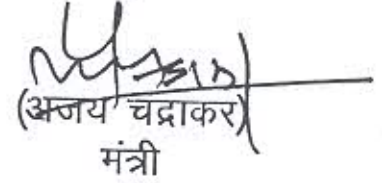 (अजय चंद्राकर)
मंत्री